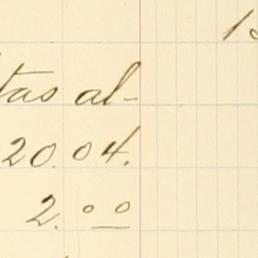 tas al-
20.04.
2.00